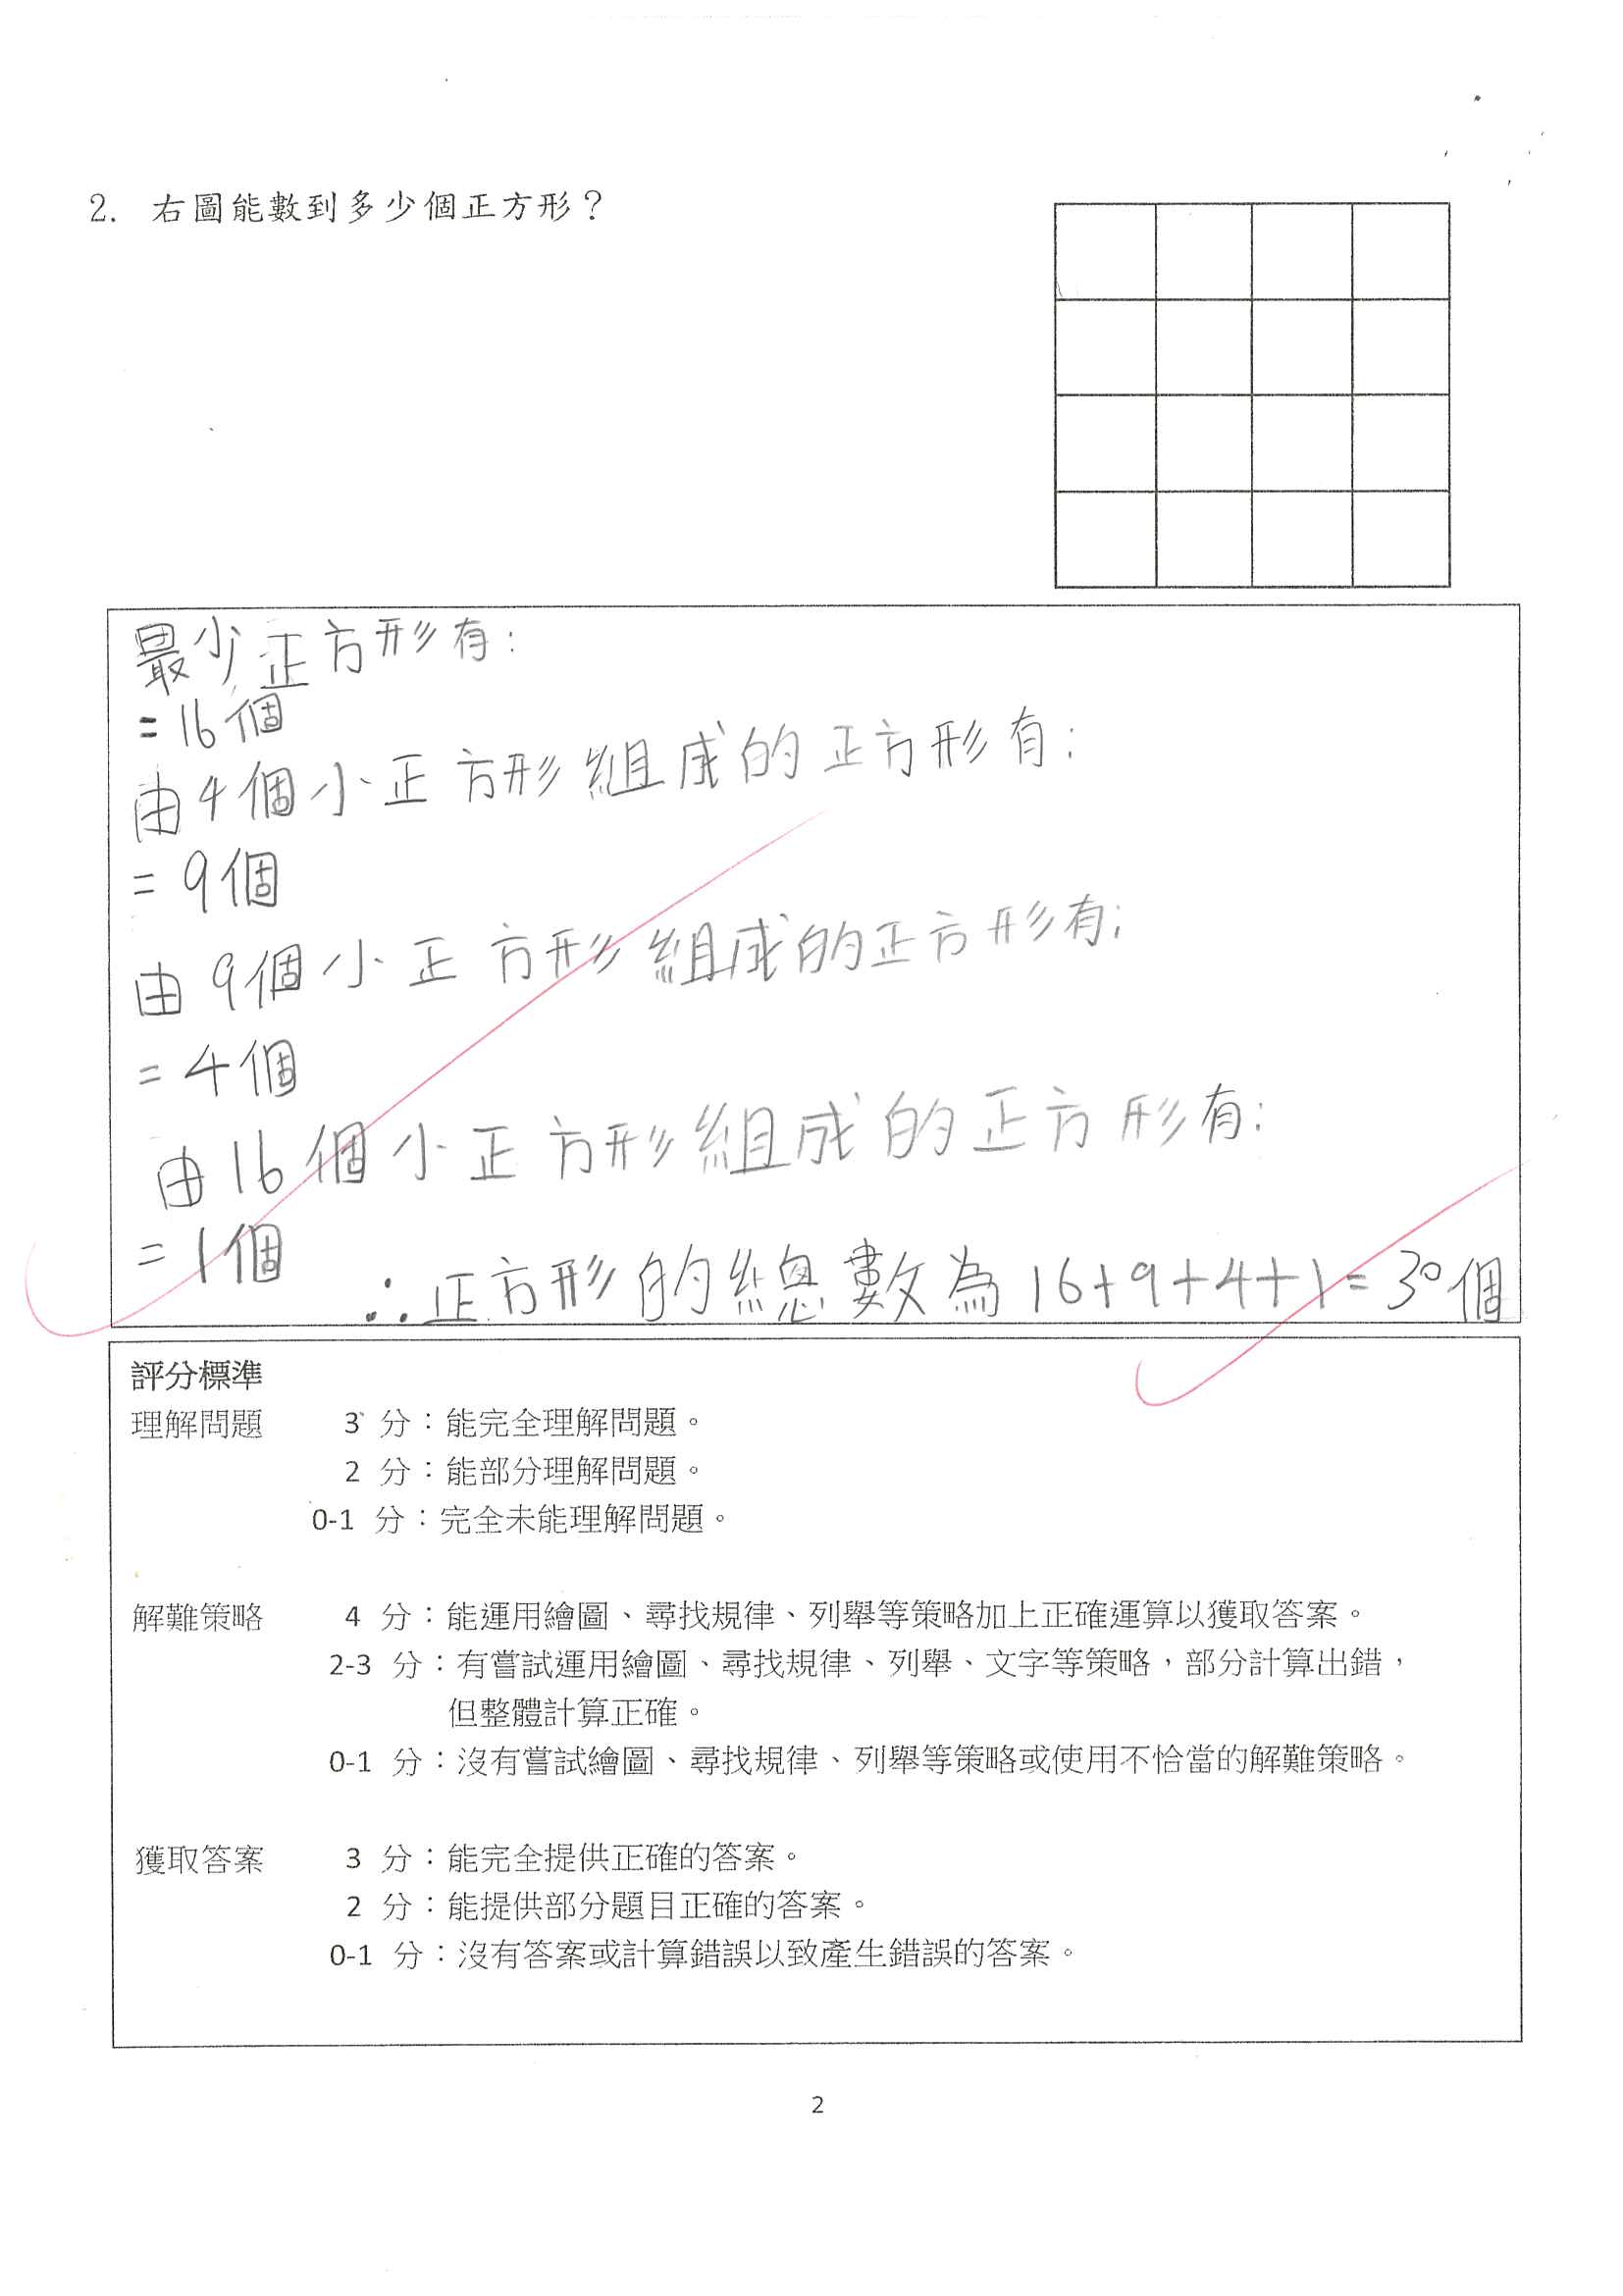 2. 右圖能數到多少個正方形？
最少正方形有：
=16個
由4個小正方形組成的正方形有：
=9個
由9個小正方形組成的正方形有；
=4個
由16個小正方形組成的正方形有：
=1個
∴正方形的總數為16+9+4+1=30個
評分標準
理解問題 3 分：能完全理解問題。
2 分：能部分理解問題。
0-1 分：完全未能理解問題。
解難策略 4 分：能運用繪圖、尋找規律、列舉等策略加上正確運算以獲取答案。
2-3 分：有嘗試運用繪圖、尋找規律、列舉、文字等策略，部分計算出錯，
但整體計算正確。
0-1 分：沒有嘗試繪圖、尋找規律、列舉等策略或使用不恰當的解難策略。
獲取答案 3 分：能完全提供正確的答案。
2 分：能提供部分題目正確的答案。
0-1 分：沒有答案或計算錯誤以致產生錯誤的答案。
2